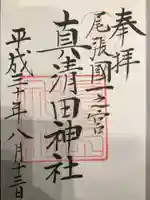 奉拝
尾張國一之宮
真清田神社
平成二十年八月十三日